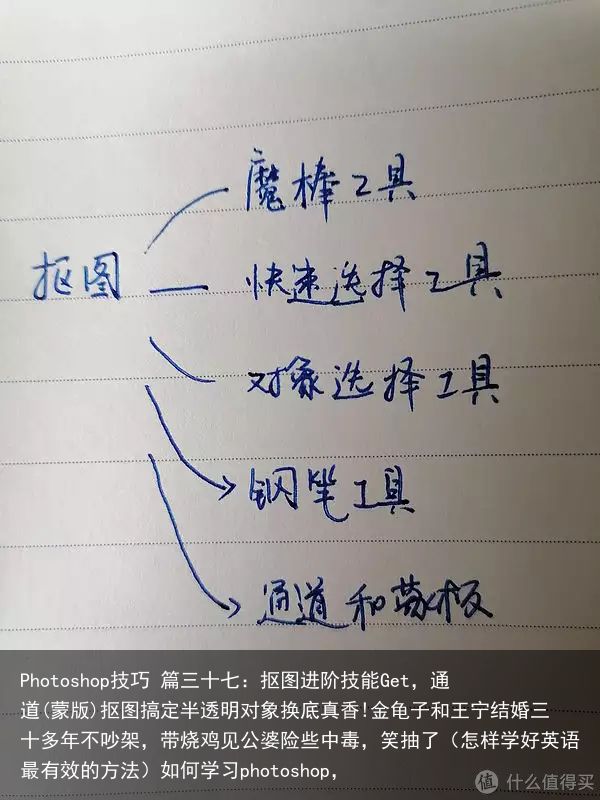 魔棒工具
抠图
快速选择工具
对象选择工具
钢笔工具
通道和蒙板
Photoshop技巧 篇三十七：抠图进阶技能Get，通
道(蒙版)抠图搞定半透明对象换底真香!金龟子和王宁结婚三
十多年不吵架，带烧鸡见公婆险些中毒，笑抽了（怎样学好英语
最有效的方法）如何学习photoshop，
值 什么值得买